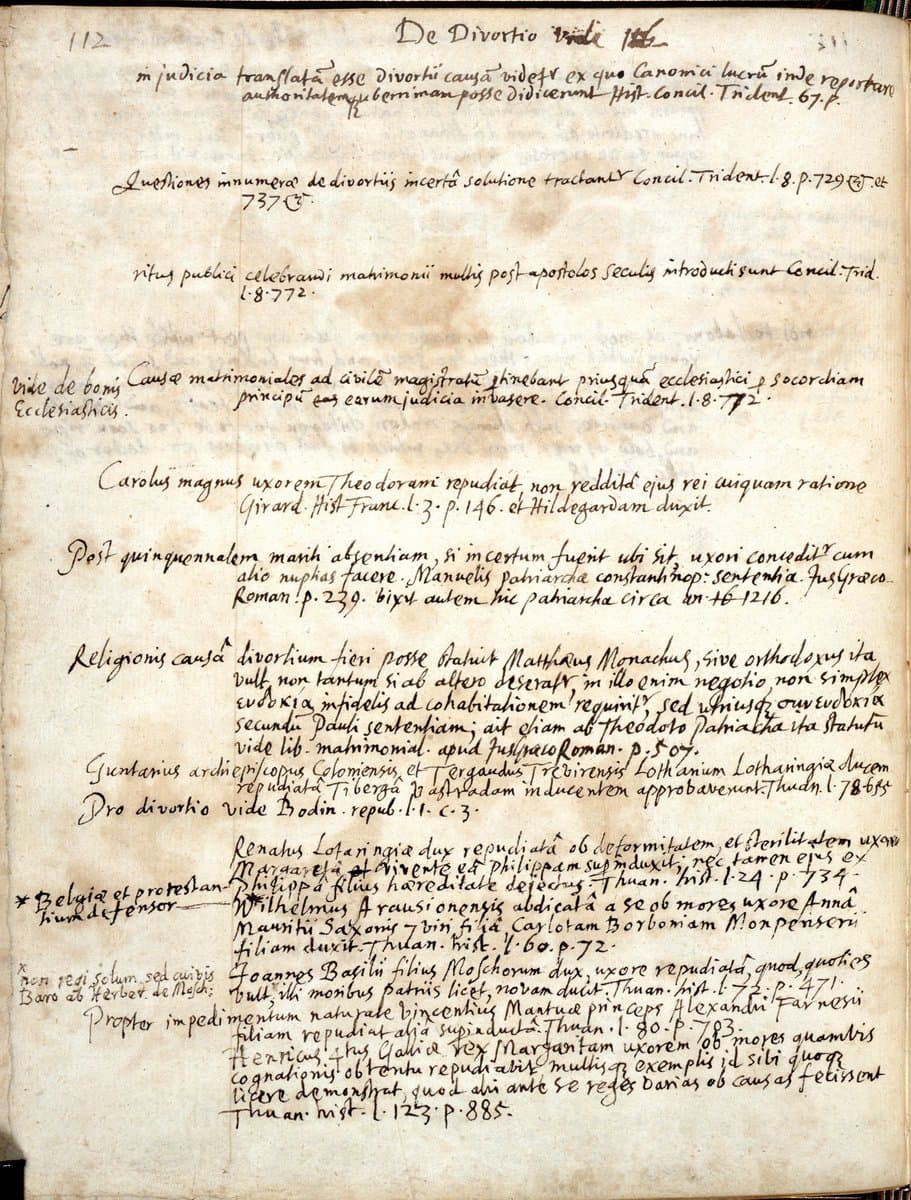 112
De Divortio vide 116
in judicia translatā esse divortii causā videtr ex quo Canonici lucrū inde reportare
authoritatemq uberrimam posse didicerunt Hist. Concil. Trident. 67. p.
Quæstiones innumeræ de divortiis incertâ solutione tractantr Concil. Trident. l. 8. p. 729 &. et
737 &.
ritus publici celebrandi matrimonii multis post apostolos seculis introducti sunt Concil. Trid.
l. 8. 772.
vide de bonis
Ecclesiasticis.
Causæ matrimoniales ad civilē magistratū ptinebant priusquā ecclesiastici p socordiam
principū eas earum judicia invasere. Concil. Trident. l. 8. 772.
Carolus magnus uxorem Theodoram repudiat, non redditâ ejus rei cuiquam ratione
Girard. Hist Franc. l. 3. p. 146. et Hildegardam duxit.
Post quinquennalem mariti absentiam, si incertum fuerit ubi sit, uxori conceditr cum
alio nuptias facere. Manuelis patriarchæ constantinop: sententia. Jus Græco-
Roman. p. 239. vixit autem hic patriarcha circa an. 16 1216.
Religionis causâ divortium fieri posse statuit Matthæus Monachus, sive orthodoxus ita
vult, non tantum si ab altero deseratr, in illo enim negotio non simplex
ευδοκία infidelis ad cohabitationem requiritr, sed utriusq συνευδοκία
secundū Pauli sententiam; ait etiam ab Theodoto Patriarcha ita statutū
vide lib. matrimonial. apud Jus Græco Roman. p. 507.
Guntarius archiepiscopus Coloniensis et Tergaudus Trevirensis Lotharium Lotharingiæ ducem
repudiatâ Tibergâ Valdradam inducentem approbaverunt. Thuan. l. 78. 655
Pro divortio vide Bodin. repub. l. 1. c. 3.
Renatus Lotaringiæ dux repudiatâ ob deformitatem, et sterilitatem uxore
Margaretâ et vivente eâ Philippam supinduxit; nec tamen ejus ex
Philippâ filius hæreditate dejectus. Thuan. hist. l. 24. p. 734.
* Belgiæ et protestan-
tium defensor
* Wilhelmus Arausionensis abdicatâ a se ob mores uxore Annâ
Mauritii Saxonis 7viri filiâ, Carlotam Borboniam Monpenserii
filiam duxit. Thuan. hist. l. 60. p. 72.
* non regi solum, sed cuivis
Baro ab Herber. de Mosch:
Joannes Basilii filius Moschorum dux, uxore repudiatâ, quod, quoties
vult, illi moribus patriis licet, novam ducit. Thuan. hist. l. 72. p. 471.
Propter impedimentum naturale vincentius Mantuæ princeps Alexandri Farnesii
filiam repudiat aliâ supinductâ. Thuan. l. 80. p. 703.
Henricus 4tus Galliæ rex Margaritam uxorem ob mores quamvis
cognationis obtentu repudiavit, multisq exemplis id sibi quoq
licere demonstrat, quod alii ante se reges varias ob causas fecissent
Thuan. hist. l. 123. p. 885.